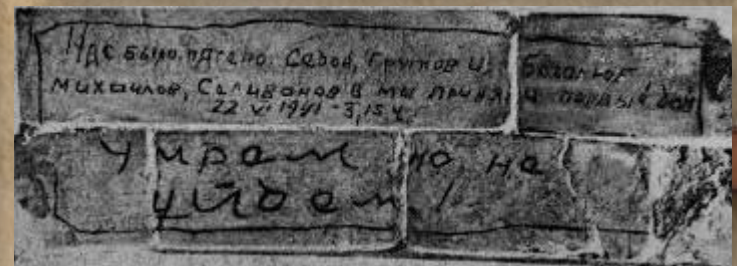 Нас было пятеро: Седов, Грутов И., Боголюб
Михайлов, Селиванов В. мы приняли первый бой
22.VI.1941 - 3,15 ч.
Умрем но не
уйдем!